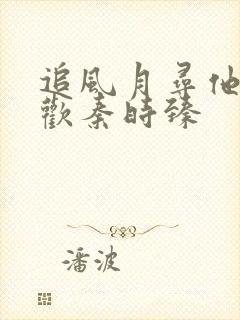 追风月尋他
歡秦時臻
潘波